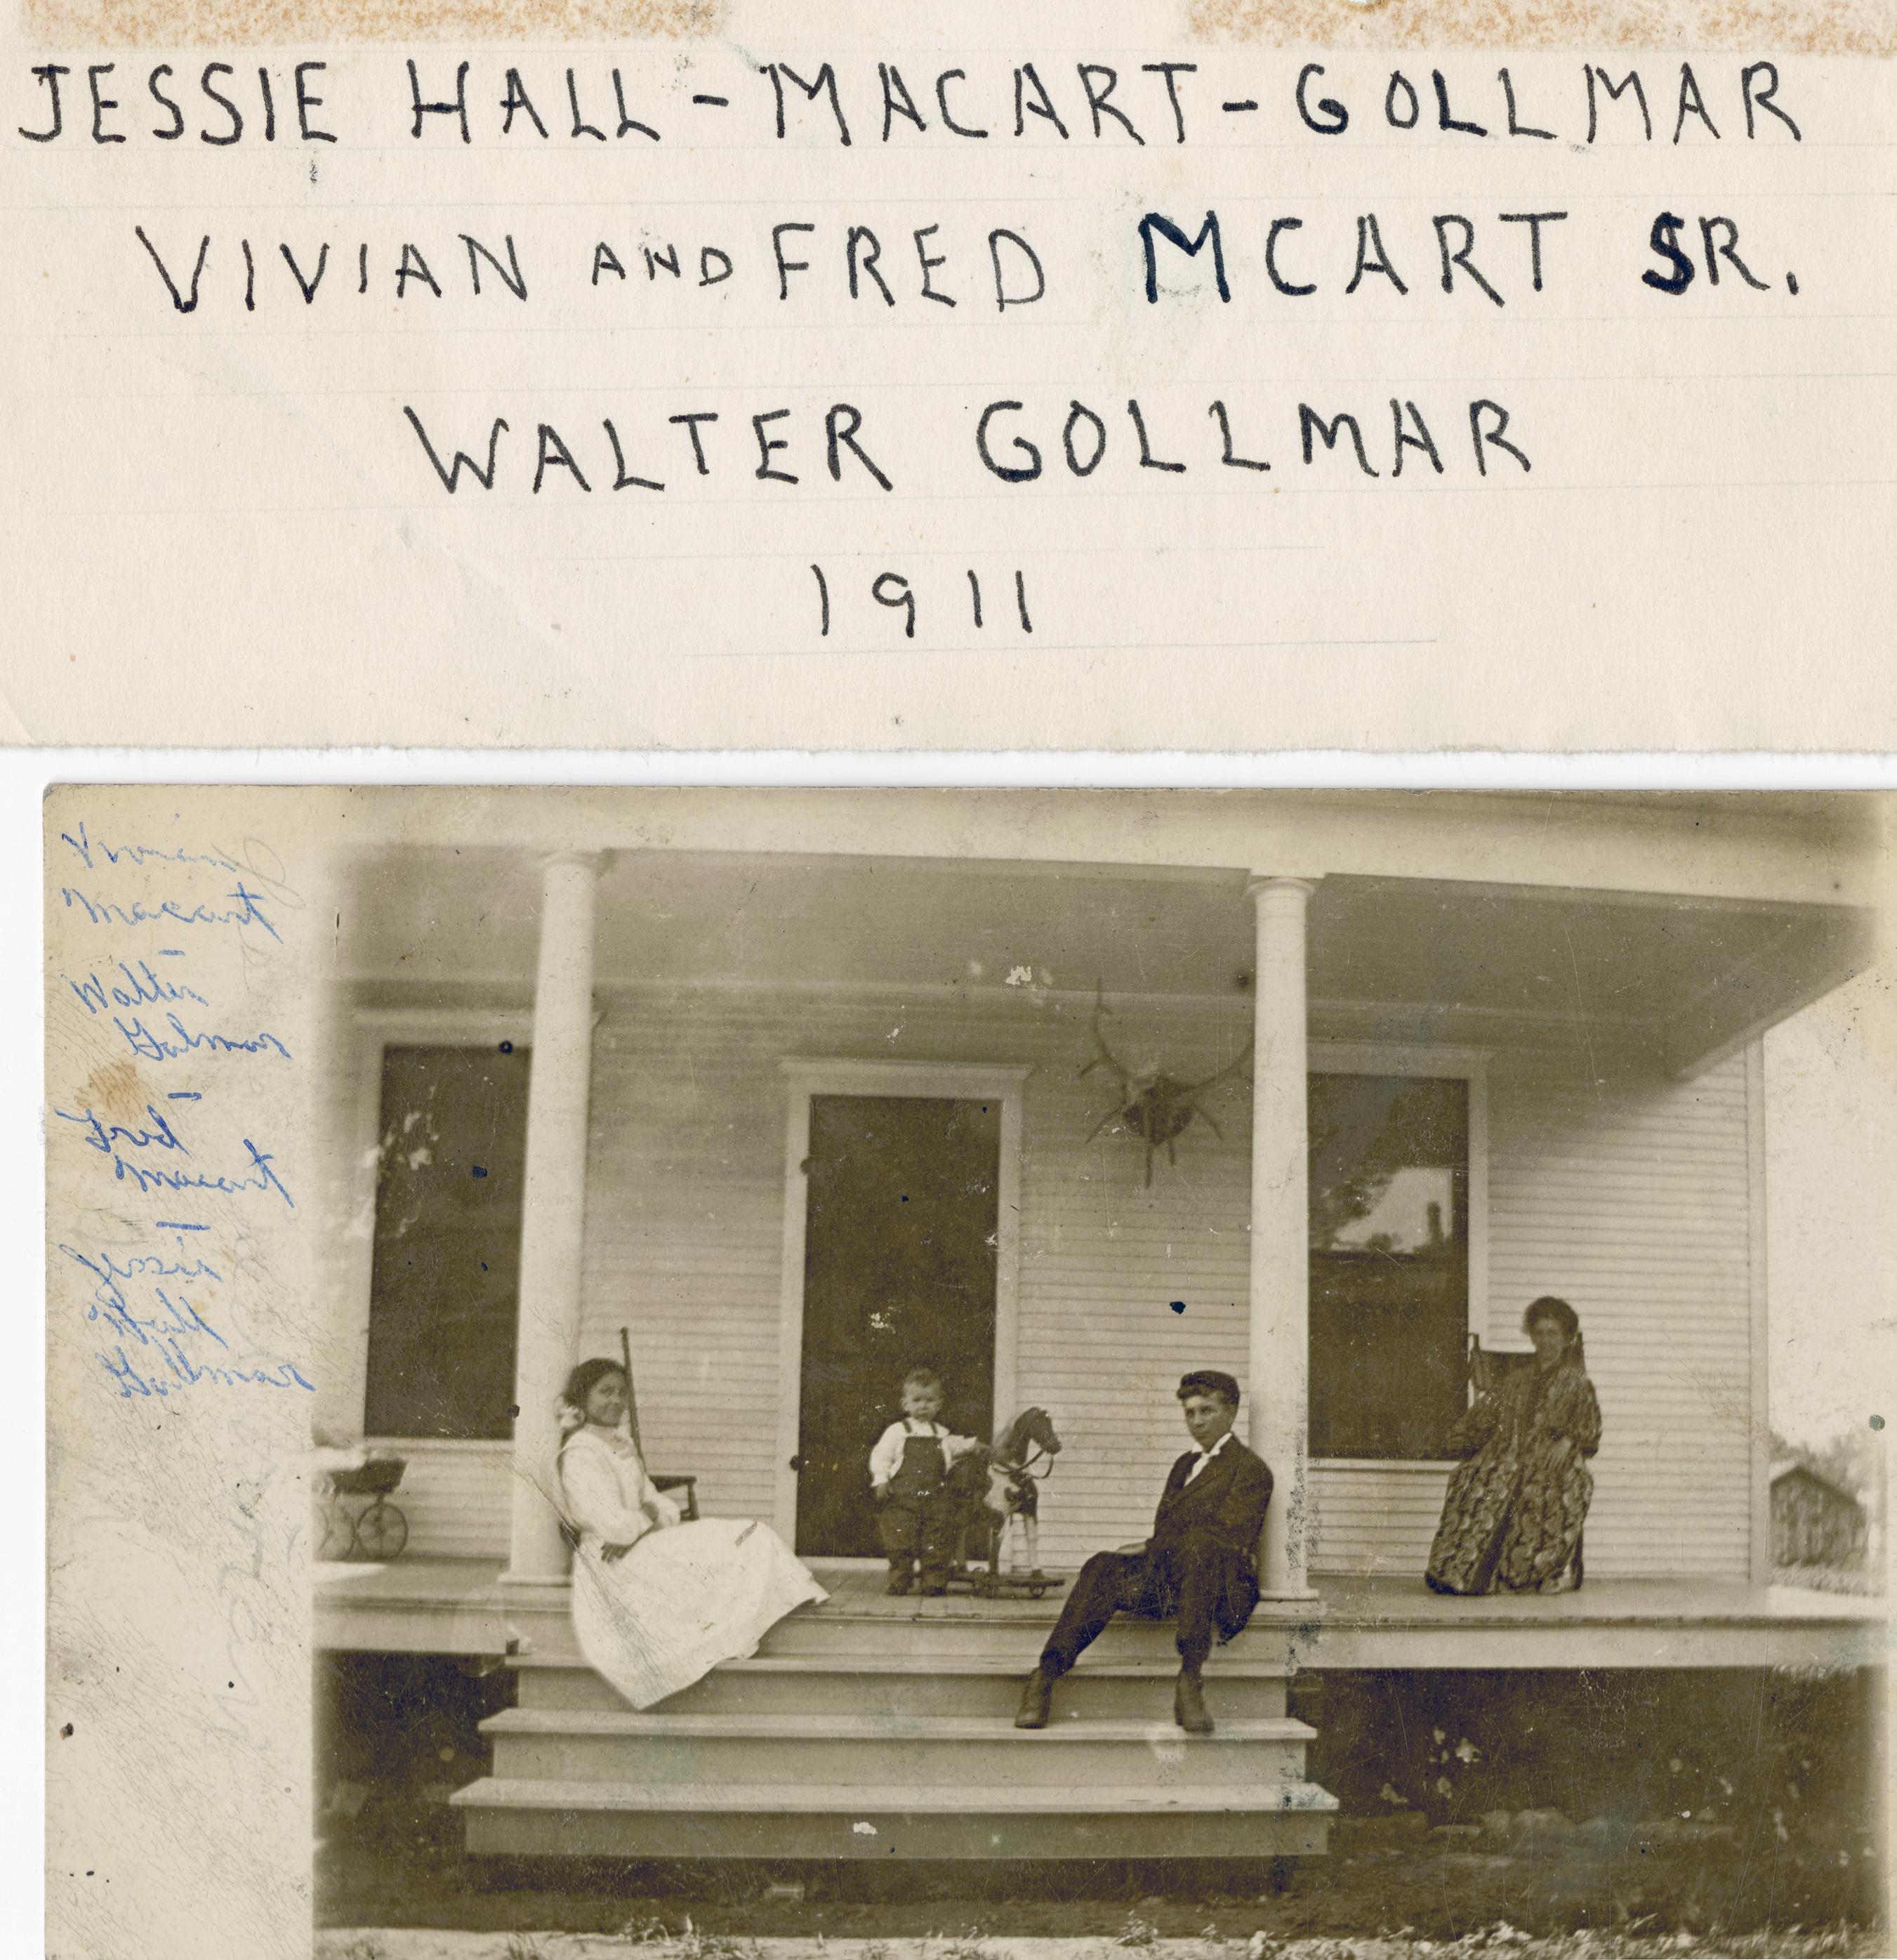 JESSIE HALL-MACART-GOLLMAR
VIVIAN AND FRED MCART SR.
WALTER GOLLMAR
1911
Vivian
Macart
-
Walter
Golmar
-
Fred
Macart
-
Jessie
Hall
Gollmar